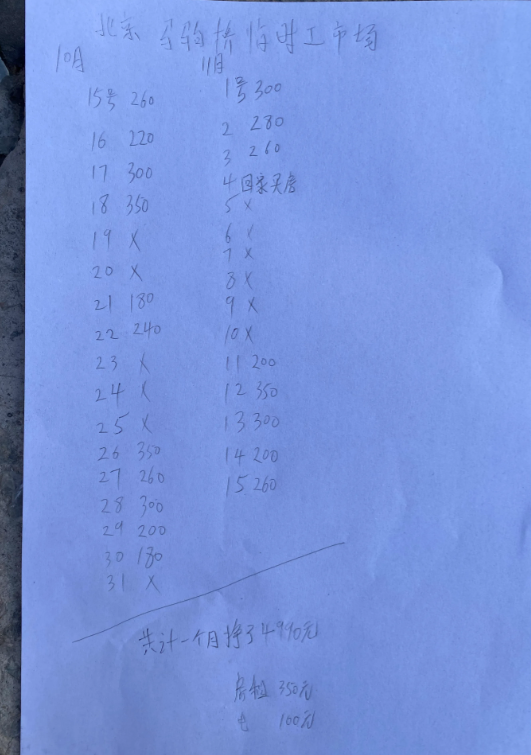 北京 马驹桥临时工市场
10月
15号 260
16 220
17 300
18 350
19 X
20 X
21 180
22 240
23 X
24 X
25 X
26 350
27 260
28 300
29 200
30 180
31 X
11月
1号 300
2 280
3 260
4 回家买房
5 X
6 X
7 X
8 X
9 X
10 X
11 200
12 350
13 300
14 200
15 260
共计一个月挣了4990元
房租 350元
电 100元